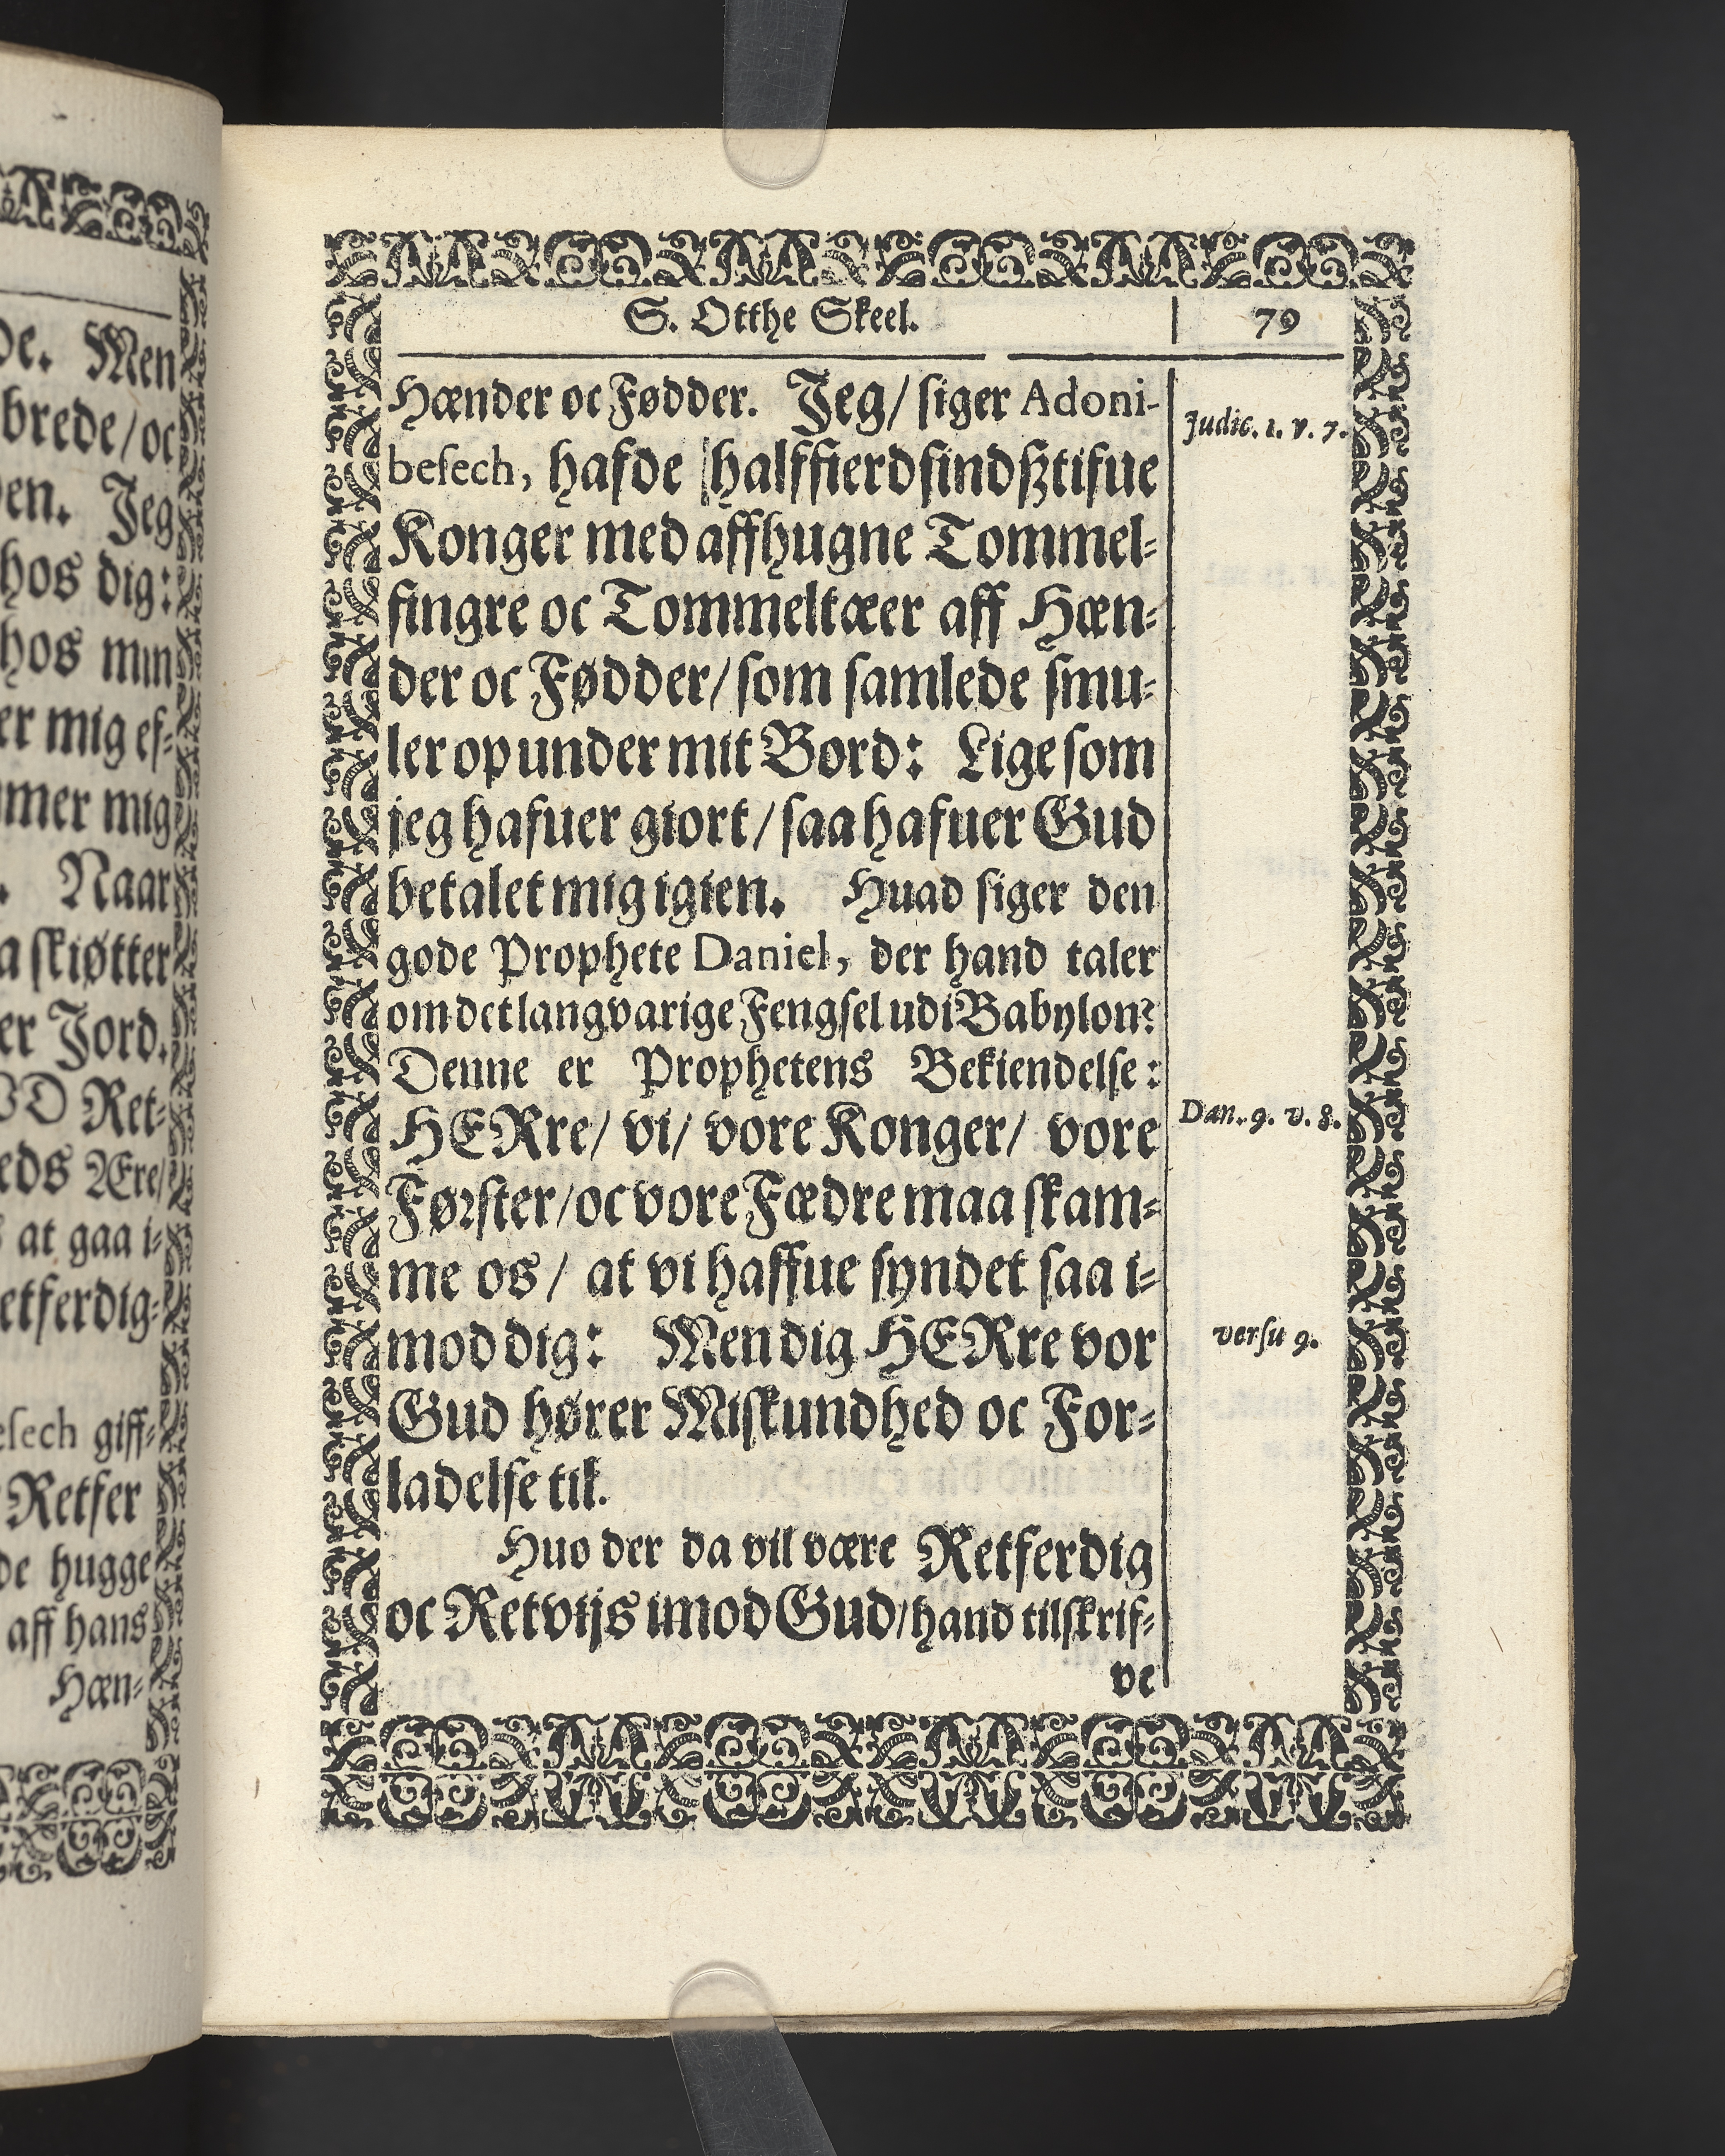 de. Men
brede/oc
den. Jeg
hos dig:
hos min
er mig ef⸗
mmer mig
. Naar
a skiøtter
er Jord.
Ret⸗
eds Ære/
at gaa i⸗
etferdig⸗
esech giff⸗
Retfer
de hugge
aff hans
Hæn⸗
S. Otthe Skeel.
79
Hænder oc Fødder. Jeg/ siger Adoni-
besech, hafde halffierdsindsztifue
Konger med affhugne Tommel⸗
fingre oc Tommeltæer aff Hæn⸗
der oc Fødder/ som samlede smu⸗
ler op under mit Bord: Lige som
jeg hafuer giort/ saa hafuer Gud
betalet mig igien. Huad siger den
gode Prophete Daniel, der hand taler
om det langvarige Fengsel udi Babylon?
Denne er Prophetens Bekiendelse:
HERre/ vi/ vore Konger/ vore
Førster/oc vore Fædre maa skam⸗
me os/ at vi haffue syndet saa i⸗
mod dig: Men dig HERre vor
Gud hører Miskundhed oc For⸗
ladelse til.
Huo der da vil være Retferdig
oc Retviis imod Gud/hand tilskrif⸗
ve
Judic. 1. v. 7.
Dan. 9. v. 8.
versu 9.